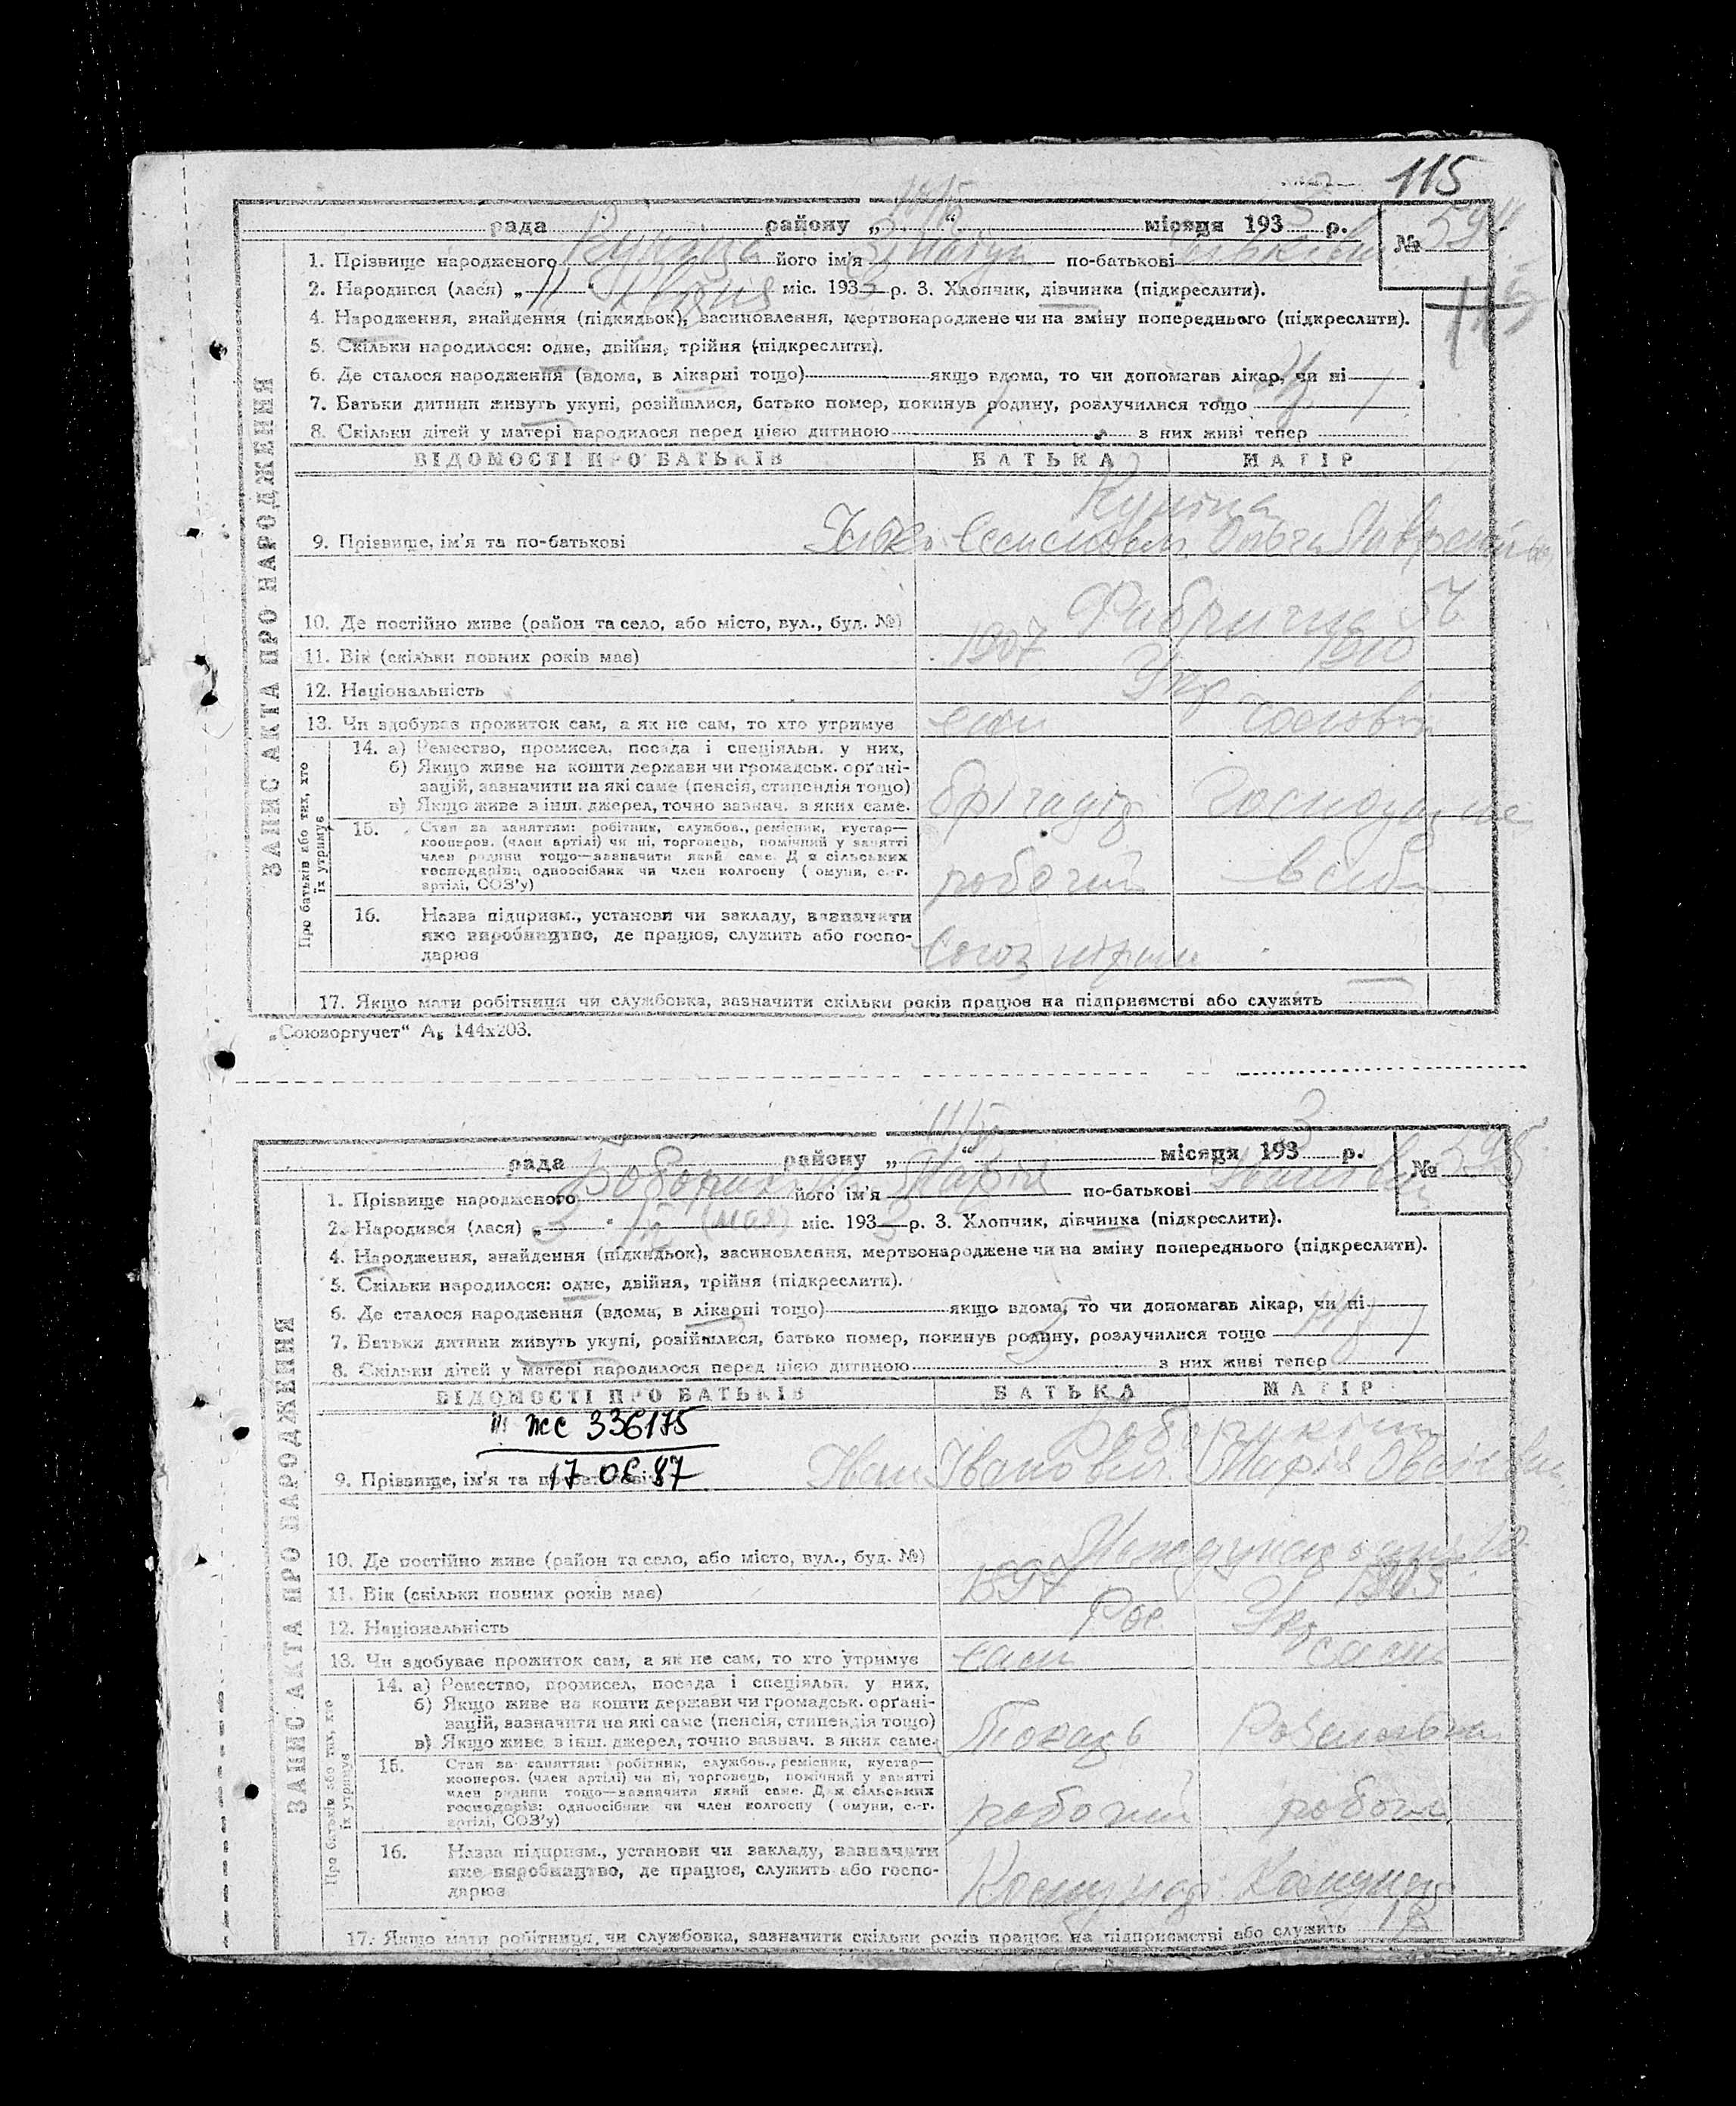 115
рада району „ 11/V “ місяця 1933 р. № 594
1. Прізвище народженого його ім'я по-батькові
2. Народився (лася) „11“ міс. 1933 р. 3. Хлопчик, дівчинка (підкреслити).
4. Народження, знайдення (підкидьок), засиновлення, мертвонароджене чи на зміну попереднього (підкреслити).
5. Скільки народилося: одне, двійня, трійня (підкреслити).
6. Де сталося народження (вдома, в лікарні тощо) якщо вдома, то чи допомагав лікар, чи ні
7. Батьки дитини живуть укупі, розійшлися, батько помер, покинув родину, розлучилися тощо
8. Скільки дітей у матері народилося перед цією дитиною з них живі тепер
ЗАПИС АКТА ПРО НАРОДЖЕННЯ
ВІДОМОСТІ ПРО БАТЬКІВ БАТЬКА МАТІР
9. Прізвище, ім'я та по-батькові Ольга
10. Де постійно живе (район та село, або місто, вул., буд. №)
11. Вік (скільки повних років має) 1907 1910
12. Національність Укр
13. Чи здобуває прожиток сам, а як не сам, то хто утримує сам чоловік
Про батьків або тих, хто їх утримує
14. а) Ремество, промисел, посада і спеціяльн. у них,
б) Якщо живе на кошти держави чи громадськ. орґані-
зацій, зазначити на які саме (пенсія, стипендія тощо)
в) Якщо живе з інш. джерел, точно зазнач. з яких саме. бригадір
15. Стан за заняттям: робітник, службов., ремісник, кустар—
кооперов. (член артілі) чи ні, торговець, помічний у занятті
член родини тощо—зазначити який саме. Для сільських
господарів: одноосібник чи член колгоспу (комуни, с.-г.
артілі, СОЗ'у) робочий
16. Назва підприєм., установи чи закладу, зазначити
яке виробництво, де працює, служить або госпо-
дарює
17. Якщо мати робітниця чи службовка, зазначити скільки років працює на підприємстві або служить —
„Союзоргучет“ А₆ 144х203.
рада району „ 11/V “ місяця 1933 р. № 595
1. Прізвище народженого його ім'я Марія по-батькові Іванівна
2. Народився (лася) „3“ V (мая) міс. 1933 р. 3. Хлопчик, дівчинка (підкреслити).
4. Народження, знайдення (підкидьок), засиновлення, мертвонароджене чи на зміну попереднього (підкреслити).
5. Скільки народилося: одне, двійня, трійня (підкреслити).
6. Де сталося народження (вдома, в лікарні тощо) якщо вдома, то чи допомагав лікар, чи ні
7. Батьки дитини живуть укупі, розійшлися, батько помер, покинув родину, розлучилися тощо
8. Скільки дітей у матері народилося перед цією дитиною з них живі тепер
ЗАПИС АКТА ПРО НАРОДЖЕННЯ
ВІДОМОСТІ ПРО БАТЬКІВ БАТЬКА МАТІР
ЖС 336175
17 06 87
9. Прізвище, ім'я та по-батькові Іван Іванович Марія
10. Де постійно живе (район та село, або місто, вул., буд. №)
11. Вік (скільки повних років має) 1897 1905
12. Національність Рос Укр
13. Чи здобуває прожиток сам, а як не сам, то хто утримує сам сама
Про батьків або тих, хто їх утримує
14. а) Ремество, промисел, посада і спеціяльн. у них,
б) Якщо живе на кошти держави чи громадськ. орґані-
зацій, зазначити на які саме (пенсія, стипендія тощо)
в) Якщо живе з інш. джерел, точно зазнач. з яких саме. Токарь
15. Стан за заняттям: робітник, службов., ремісник, кустар—
кооперов. (член артілі) чи ні, торговець, помічний у занятті
член родини тощо—зазначити який саме. Для сільських
господарів: одноосібник чи член колгоспу (комуни, с.-г.
артілі, СОЗ'у) робочий робоча
16. Назва підприєм., установи чи закладу, зазначити
яке виробництво, де працює, служить або госпо-
дарює
17. Якщо мати робітниця чи службовка, зазначити скільки років працює на підприємстві або служить